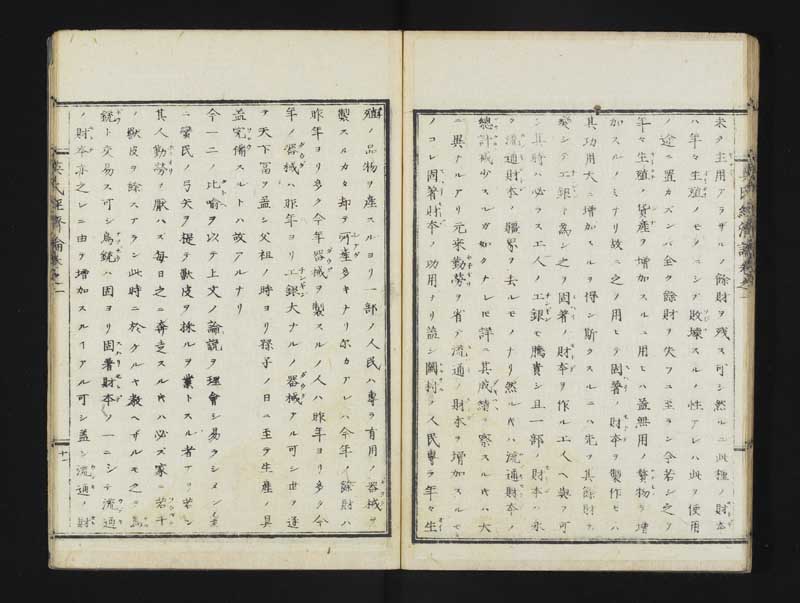 未タ主用アラザルノ餘財ヲ残ス可シ然ルニ此種ノ財本
ハ年々生殖ノモクニシテ敗壊スルノ性アレハ此ヲ使用
ノ途ニ置カズンバ全ク餘財ヲ失フニ至ラン今若シ之ヲ
年々生殖ノ貨産ヲ増加スルニ用ヒハ益無用ノ贅物ヲ増
加スルノミナリ故ニ之ヲ用ヒテ固著ノ財本ヲ製作セハ
其功用大ニ増加スルヲ得ン斯クスルニハ先ツ其餘財ヲ
費シテ工銀ト為シ之ヲ固著ノ財本ヲ作ル工人ヘ與フ可
シ其時ハ必ラス工人ノ工銀モ騰貴シ且一部ノ財本ハ永
ク流通財本ノ疆界ヲ去ルモノナリ然ル片ハ流通財本ノ
總計減少スルガ如クナレ𪜈詳ニ其成績ヲ察スル片ハ大
ニ異ナルアリ元来勤勞ヲ省テ流通ノ財本ヲ増加スルモ
ノコレ固著財本ノ功用ナリ蓋シ闔村ノ人民專ラ年々生
殖ノ品物ヲ産スルヨリ一部ノ人民ハ專ラ有用ノ器械ヲ
製スルカタ却テ所産多キナリ尓カアレハ今年ノ餘財ハ
昨年ヨリ多ク今年器械ヲ製スルノ人ハ昨年ヨリ多ク今
年ノ器械ハ昨年ヨリ工銀大ナルノ器械アル可シ世ヲ逐
ヲ天下冨ヲ益シ父祖ノ時ヨリ孫子ノ日ニ至テ生産ノ具
益完備スルトハ故アルナリ
今一二ノ比喩ヲ以テ上文ノ論説ヲ理會シ易ラシメン
ニ蠻民ノ弓矢ヲ提テ獸皮ヲ採ルヲ業トスル者アリ若シ
其人勤勞ヲ厭ハズ毎日之ニ奔走スル片ハ必ズ家ニ若干
ノ獸皮ヲ餘スアラン此時ニ於ケルヤ教ヘザルモ之ヲ鳥
銃ト交易ス可シ鳥銃ハ因ヨリ固著財本ノ一ニシテ流通
ノ財本亦之レニ由テ増加スルアル可シ蓋シ流通ノ財
英氏經濟論巻之二
十一